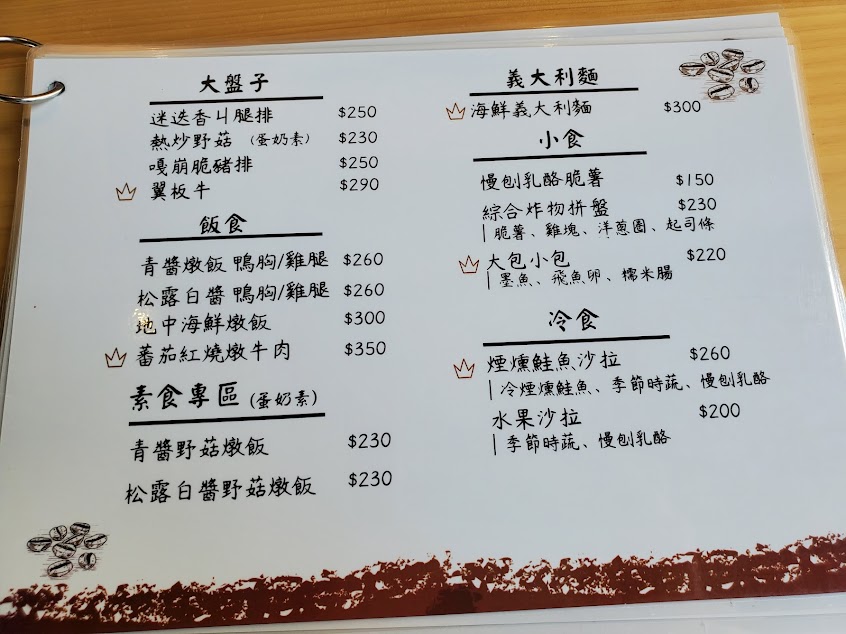 大盤子
迷迭香ㄐ腿排 $250
熱炒野菇 (蛋奶素) $230
嘎崩脆豬排 $250
翼板牛 $290
飯食
青醬燉飯 鴨胸/雞腿 $260
松露白醬 鴨胸/雞腿 $260
地中海鮮燉飯 $300
蕃茄紅燒燉牛肉 $350
素食專區 (蛋奶素)
青醬野菇燉飯 $230
松露白醬野菇燉飯 $230
義大利麵
海鮮義大利麵 $300
小食
慢刨乳酪脆薯 $150
綜合炸物拼盤 $230
脆薯、雞塊、洋蔥圈、起司條
大包小包 $220
墨魚、飛魚卵、糯米腸
冷食
煙燻鮭魚沙拉 $260
冷煙燻鮭魚、季節時蔬、慢刨乳酪
水果沙拉 $200
季節時蔬、慢刨乳酪